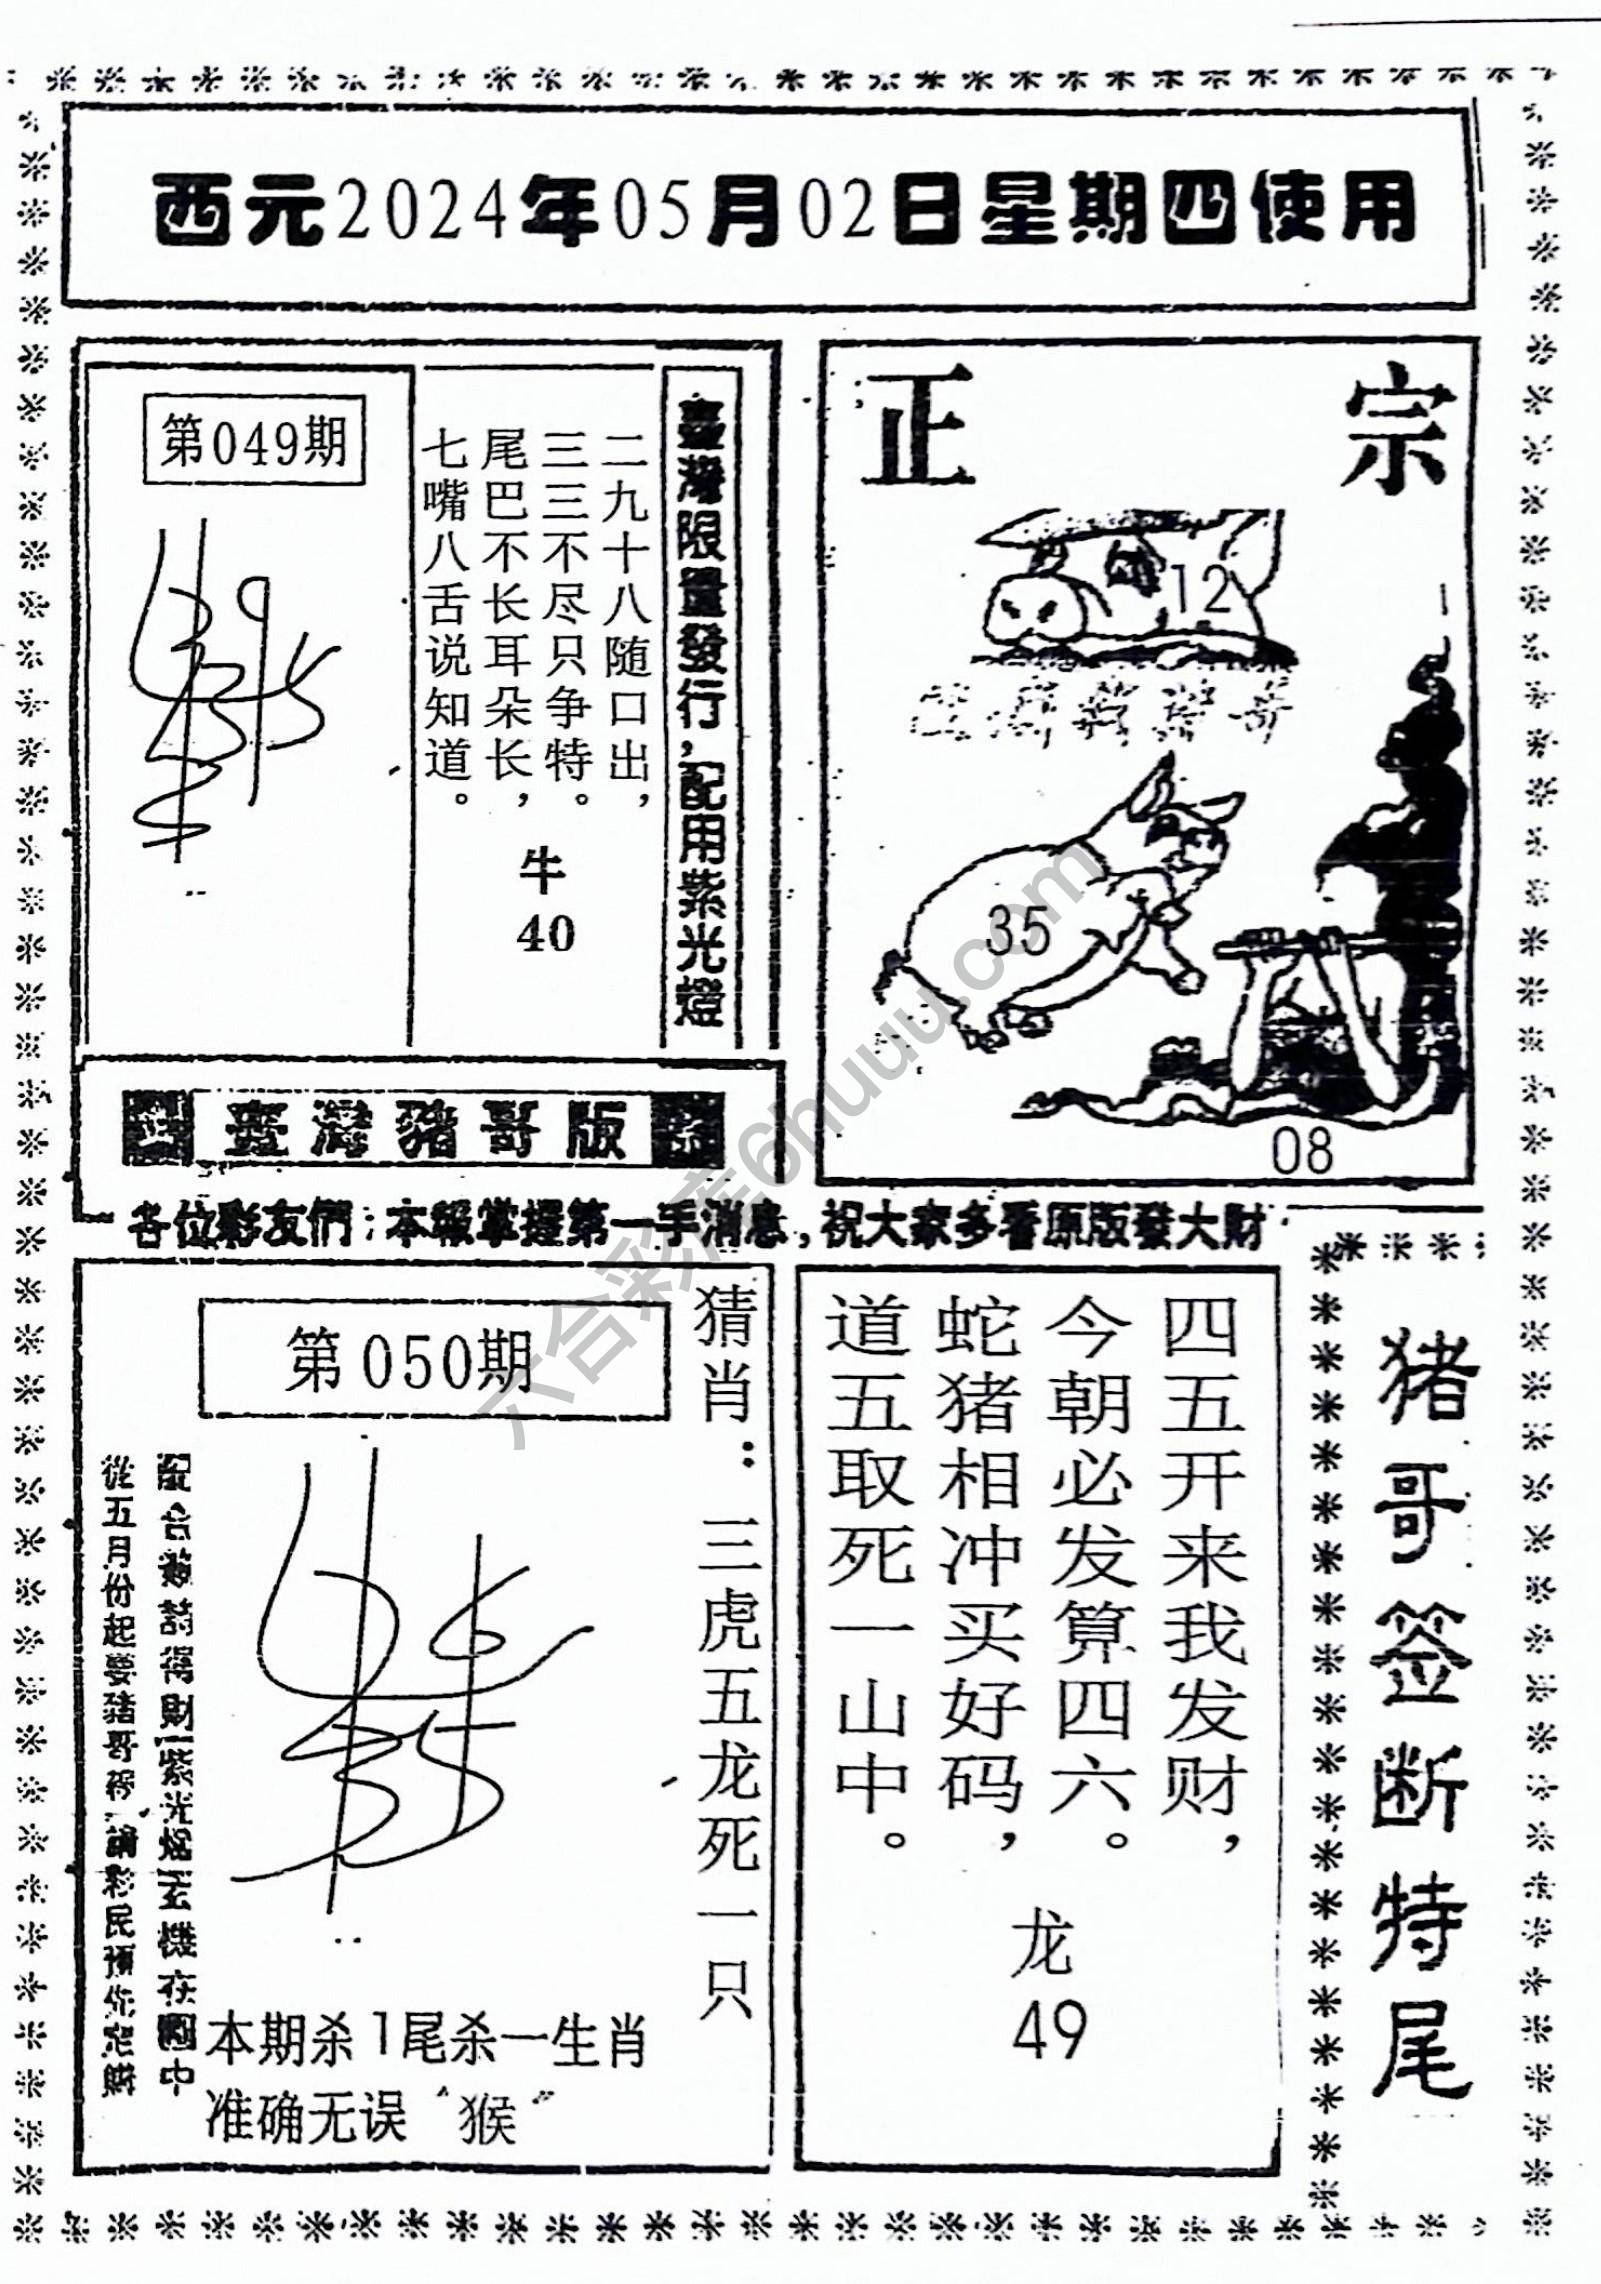 西元2024年05月02日星期四使用
第049期
二九十八随口出，
三三不尽只争特。
尾巴不长耳朵长，
七嘴八舌说知道。
牛
40
臺灣限量發行，配用紫光燈
正宗
12
35
08
臺灣豬哥版
各位彩友們：本報掌握第一手消息，祝大家多看原版發大財
第050期
猜肖：三虎五龙死一只
本期杀1尾杀一生肖
准确无误“猴”
四五开来我发财，
今朝必发算四六。
蛇猪相冲买好码，
道五取死一山中。
龙
49
猪哥签断特尾
六合彩库6huuu.com